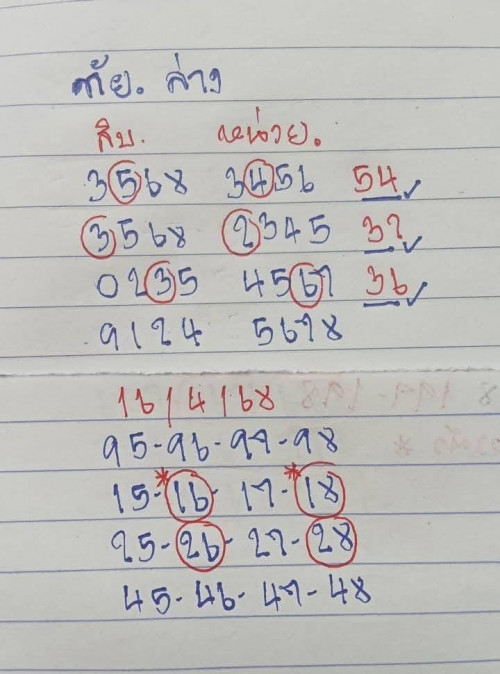 ภัย. ล่าง
สิบ. หน่วย.
3568 3456 54
3568 2345 32
0235 4567 36
9124 5678
16/4/68
95-96-97-98
15-*16-17-*18
25-26-27-28
45-46-47-48